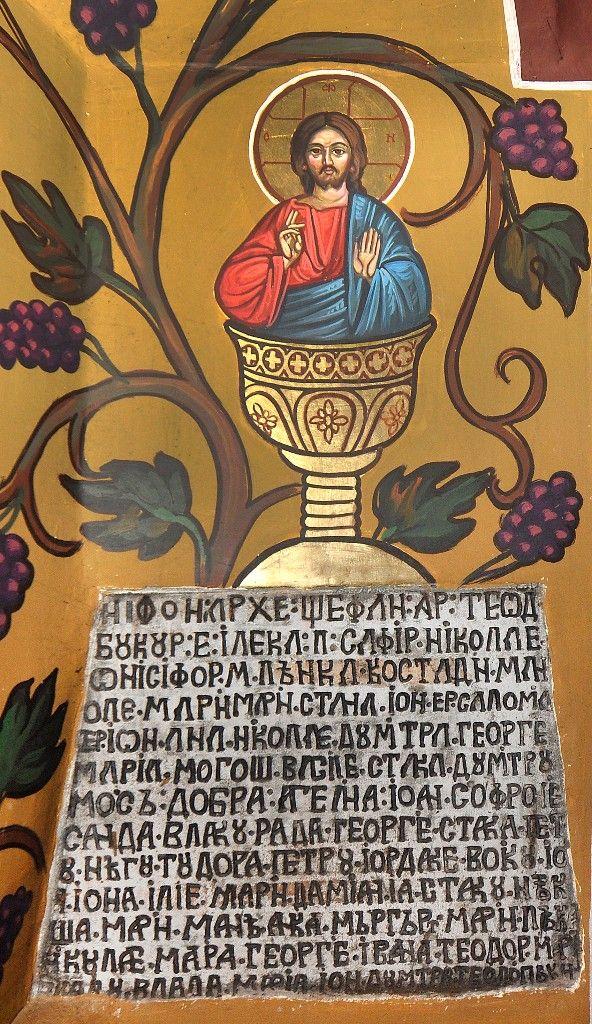 Ο ΩΝ
НІФОН·АРХЕ·ШЕФАН·АР·ТЕѠД
БꙊКꙊР·Е·ІЛЕКА·П·САФІР·НІКОЛЛЕ
ѠНІСІФОР·М·ПѢНКА·КОСТАДН·МАН
ОЛЕ·МАРІМАРН·СТАНА·ІОН·ЕРСАЛОМА
ІѠН·АНА·НКОЛАЕ·ДꙊМТРА·ГЕОРГЕ
МАРІА·МОГОШ·ВАСІЛЕ·СТАКА·ДꙊМТРꙊ
МОСЪ·ДОБРА·АГЕІНА·ІОАН·СОФРОІЕ
САНДА·ВЛАКꙊ·РАДА·ГЕОРГЕ·СТАКА·ПЕТ
НѢГꙊ·ТꙊДОРА·ПЕТРꙊ·ІОРДАКЕ·ВОКꙊ·ІО
ІОНА·ІЛІЕ·МАРН·ДАМІАН·ІА·СТАКꙊ
ША·МАРН·МАНѢ·АКА·МЪРГЪР·МАРН
КꙊЛАЕ·МАРА·ГЕОРГЕ·ІВАНА·ТЕОДОР
ВЛАДА·МАРІА·ІОН·ДꙊМТРА